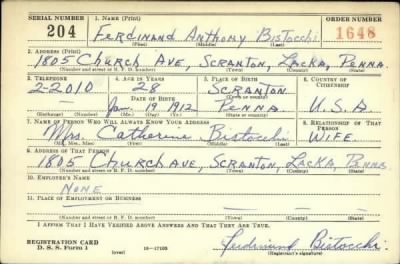 SERIAL NUMBER 1. NAME (Print) ORDER NUMBER
204 FERDINAND ANTHONY BISTOCCHI 1648
(First) (Middle) (Last)
2. ADDRESS (Print)
1805 CHURCH AVE, SCRANTON, LACKA, PENNA.
(Number and street or R. F. D. number) (Town) (County) (State)
3. TELEPHONE 4. AGE IN YEARS 5. PLACE OF BIRTH 6. COUNTRY OF CITIZENSHIP
2-2010 28 SCRANTON
DATE OF BIRTH (Town or county)
Jan. 19 1912 PENNA. U.S.A
(Exchange) (Number) (Mo.) (Day) (Yr.) (State or country)
7. NAME OF PERSON WHO WILL ALWAYS KNOW YOUR ADDRESS 8. RELATIONSHIP OF THAT PERSON
Mrs. Catherine Bistocchi WIFE
(Mr., Mrs., Miss) (First) (Middle) (Last)
9. ADDRESS OF THAT PERSON
1805 CHURCH AVE, SCRANTON, LACKA, PENNA
(Number and street or R. F. D. number) (Town) (County) (State)
10. EMPLOYER'S NAME
NONE
11. PLACE OF EMPLOYMENT OR BUSINESS
(Number and street or R. F. D. number) (Town) (County) (State)
I AFFIRM THAT I HAVE VERIFIED ABOVE ANSWERS AND THAT THEY ARE TRUE.
REGISTRATION CARD
D. S. S. Form 1 (over) 16-17105 Ferdinand Bistocchi
(Registrant's signature)